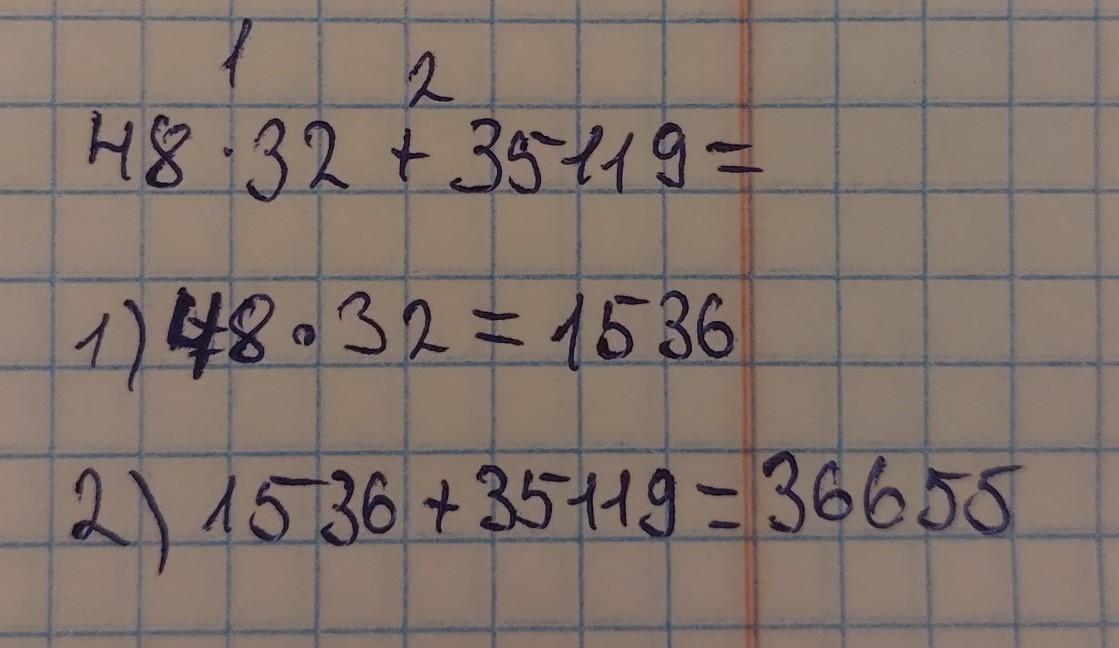 1 2
48 · 32 + 35119 =
1) 48 · 32 = 1536
2) 1536 + 35119 = 36655